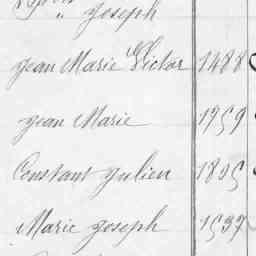 " Joseph
Jean Marie Victor 1488
Jean Marie 1759
Constant Julien 1805
Marie Joseph 1537